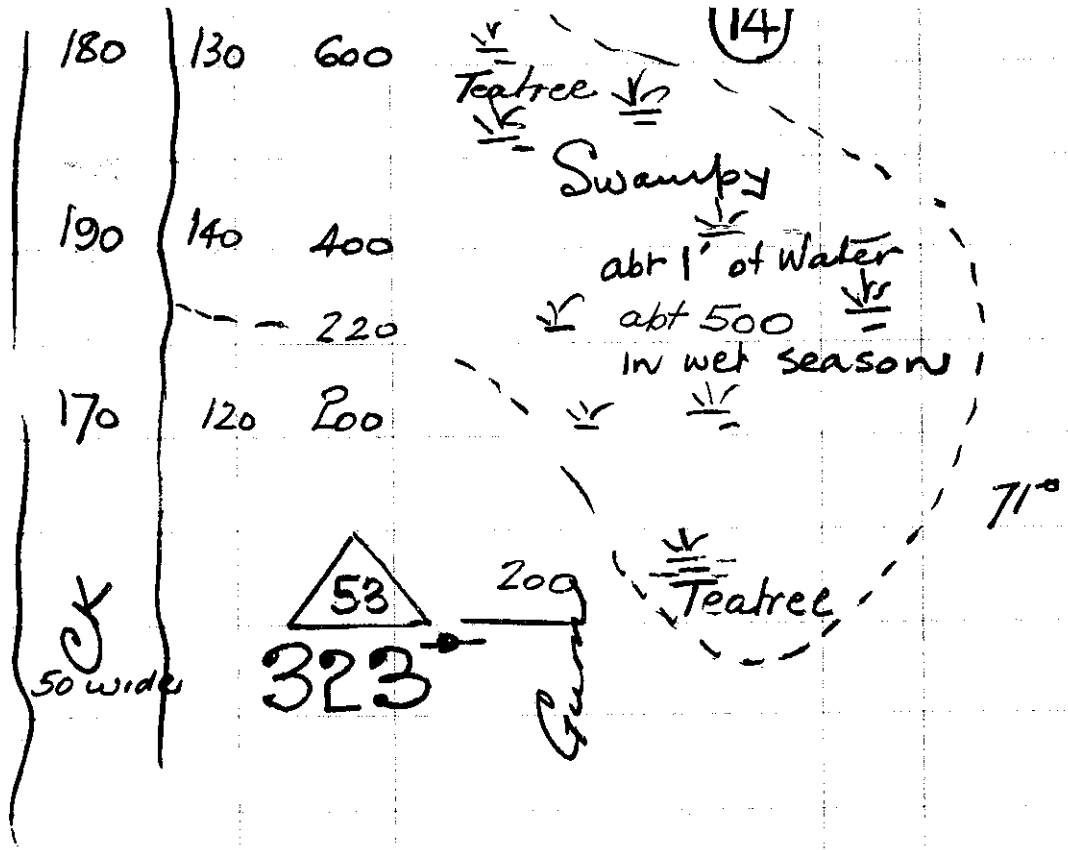 180 130 600 14
Teatree
Swampy
190 140 400
abt 1' of Water
220 abt 500
in wet season
170 120 200
71°
53
200
Teatree
Ck
50 wide
323
Gum